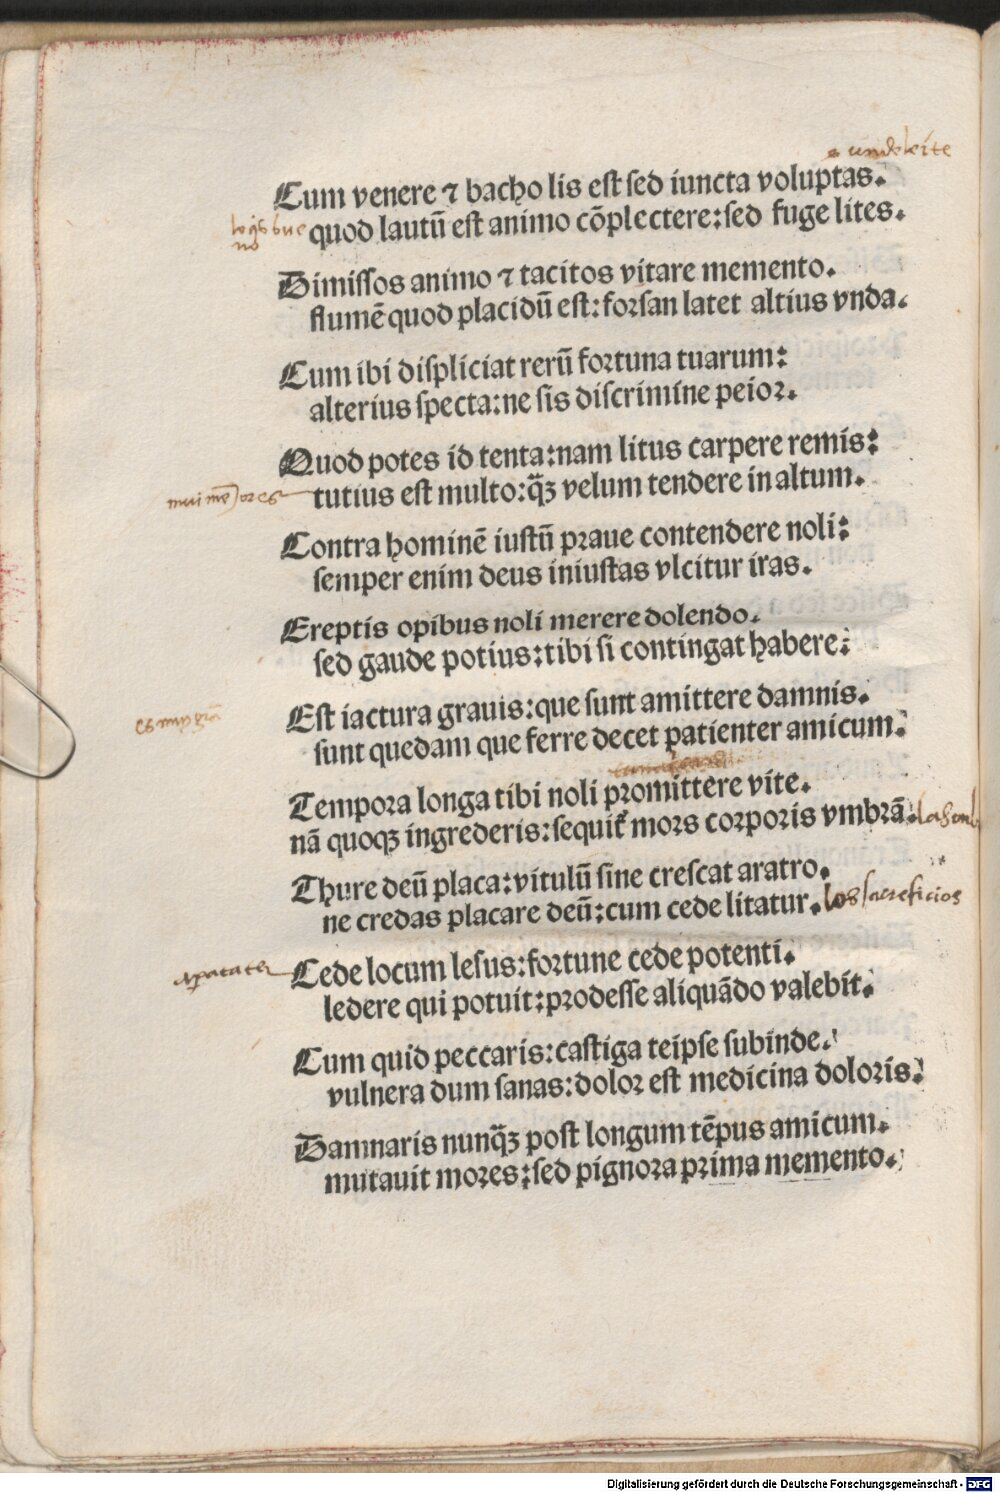 a undeleite
Cum venere ⁊ bacho lis est sed iuncta voluptas.
lo q̃ es bue
no
quod lautũ est animo cõplectere: sed fuge lites.
Dimissos animo ⁊ tacitos vitare memento.
flumẽ quod placidũ est: forsan latet altius vnda.
Cum ibi displiciat rerũ fortuna tuarum:
alterius specta: ne sis discrimine peior.
Quod potes id tenta: nam litus carpere remis:
tutius est multo: q̃ꝫ velum tendere in altum.
Contra hominẽ iustũ praue contendere noli:
semper enim deus iniustas vlcitur iras.
Ereptis opibus noli merere dolendo.
sed gaude potius: tibi si contingat habere:
Est iactura grauis: que sunt amittere damnis.
sunt quedam que ferre decet patienter amicum.
Tempora longa tibi noli promittere vite.
nã quoqꝫ ingrederis: sequit᷑ mors corporis vmbrã. la somb
Thure deũ placa: vitulũ sine crescat aratro.
ne credas placare deũ: cum cede litatur. los sacreficios
apartate
Cede locum lesus: fortune cede potenti.
ledere qui potuit: prodesse aliquãdo valebit.
Cum quid peccaris: castiga teipse subinde.
vulnera dum sanas: dolor est medicina doloris.
Damnaris nunq̃ꝫ post longum tẽpus amicum.
mutauit mores: sed pignora prima memento.
Digitalisierung gefördert durch die Deutsche Forschungsgemeinschaft - DFG